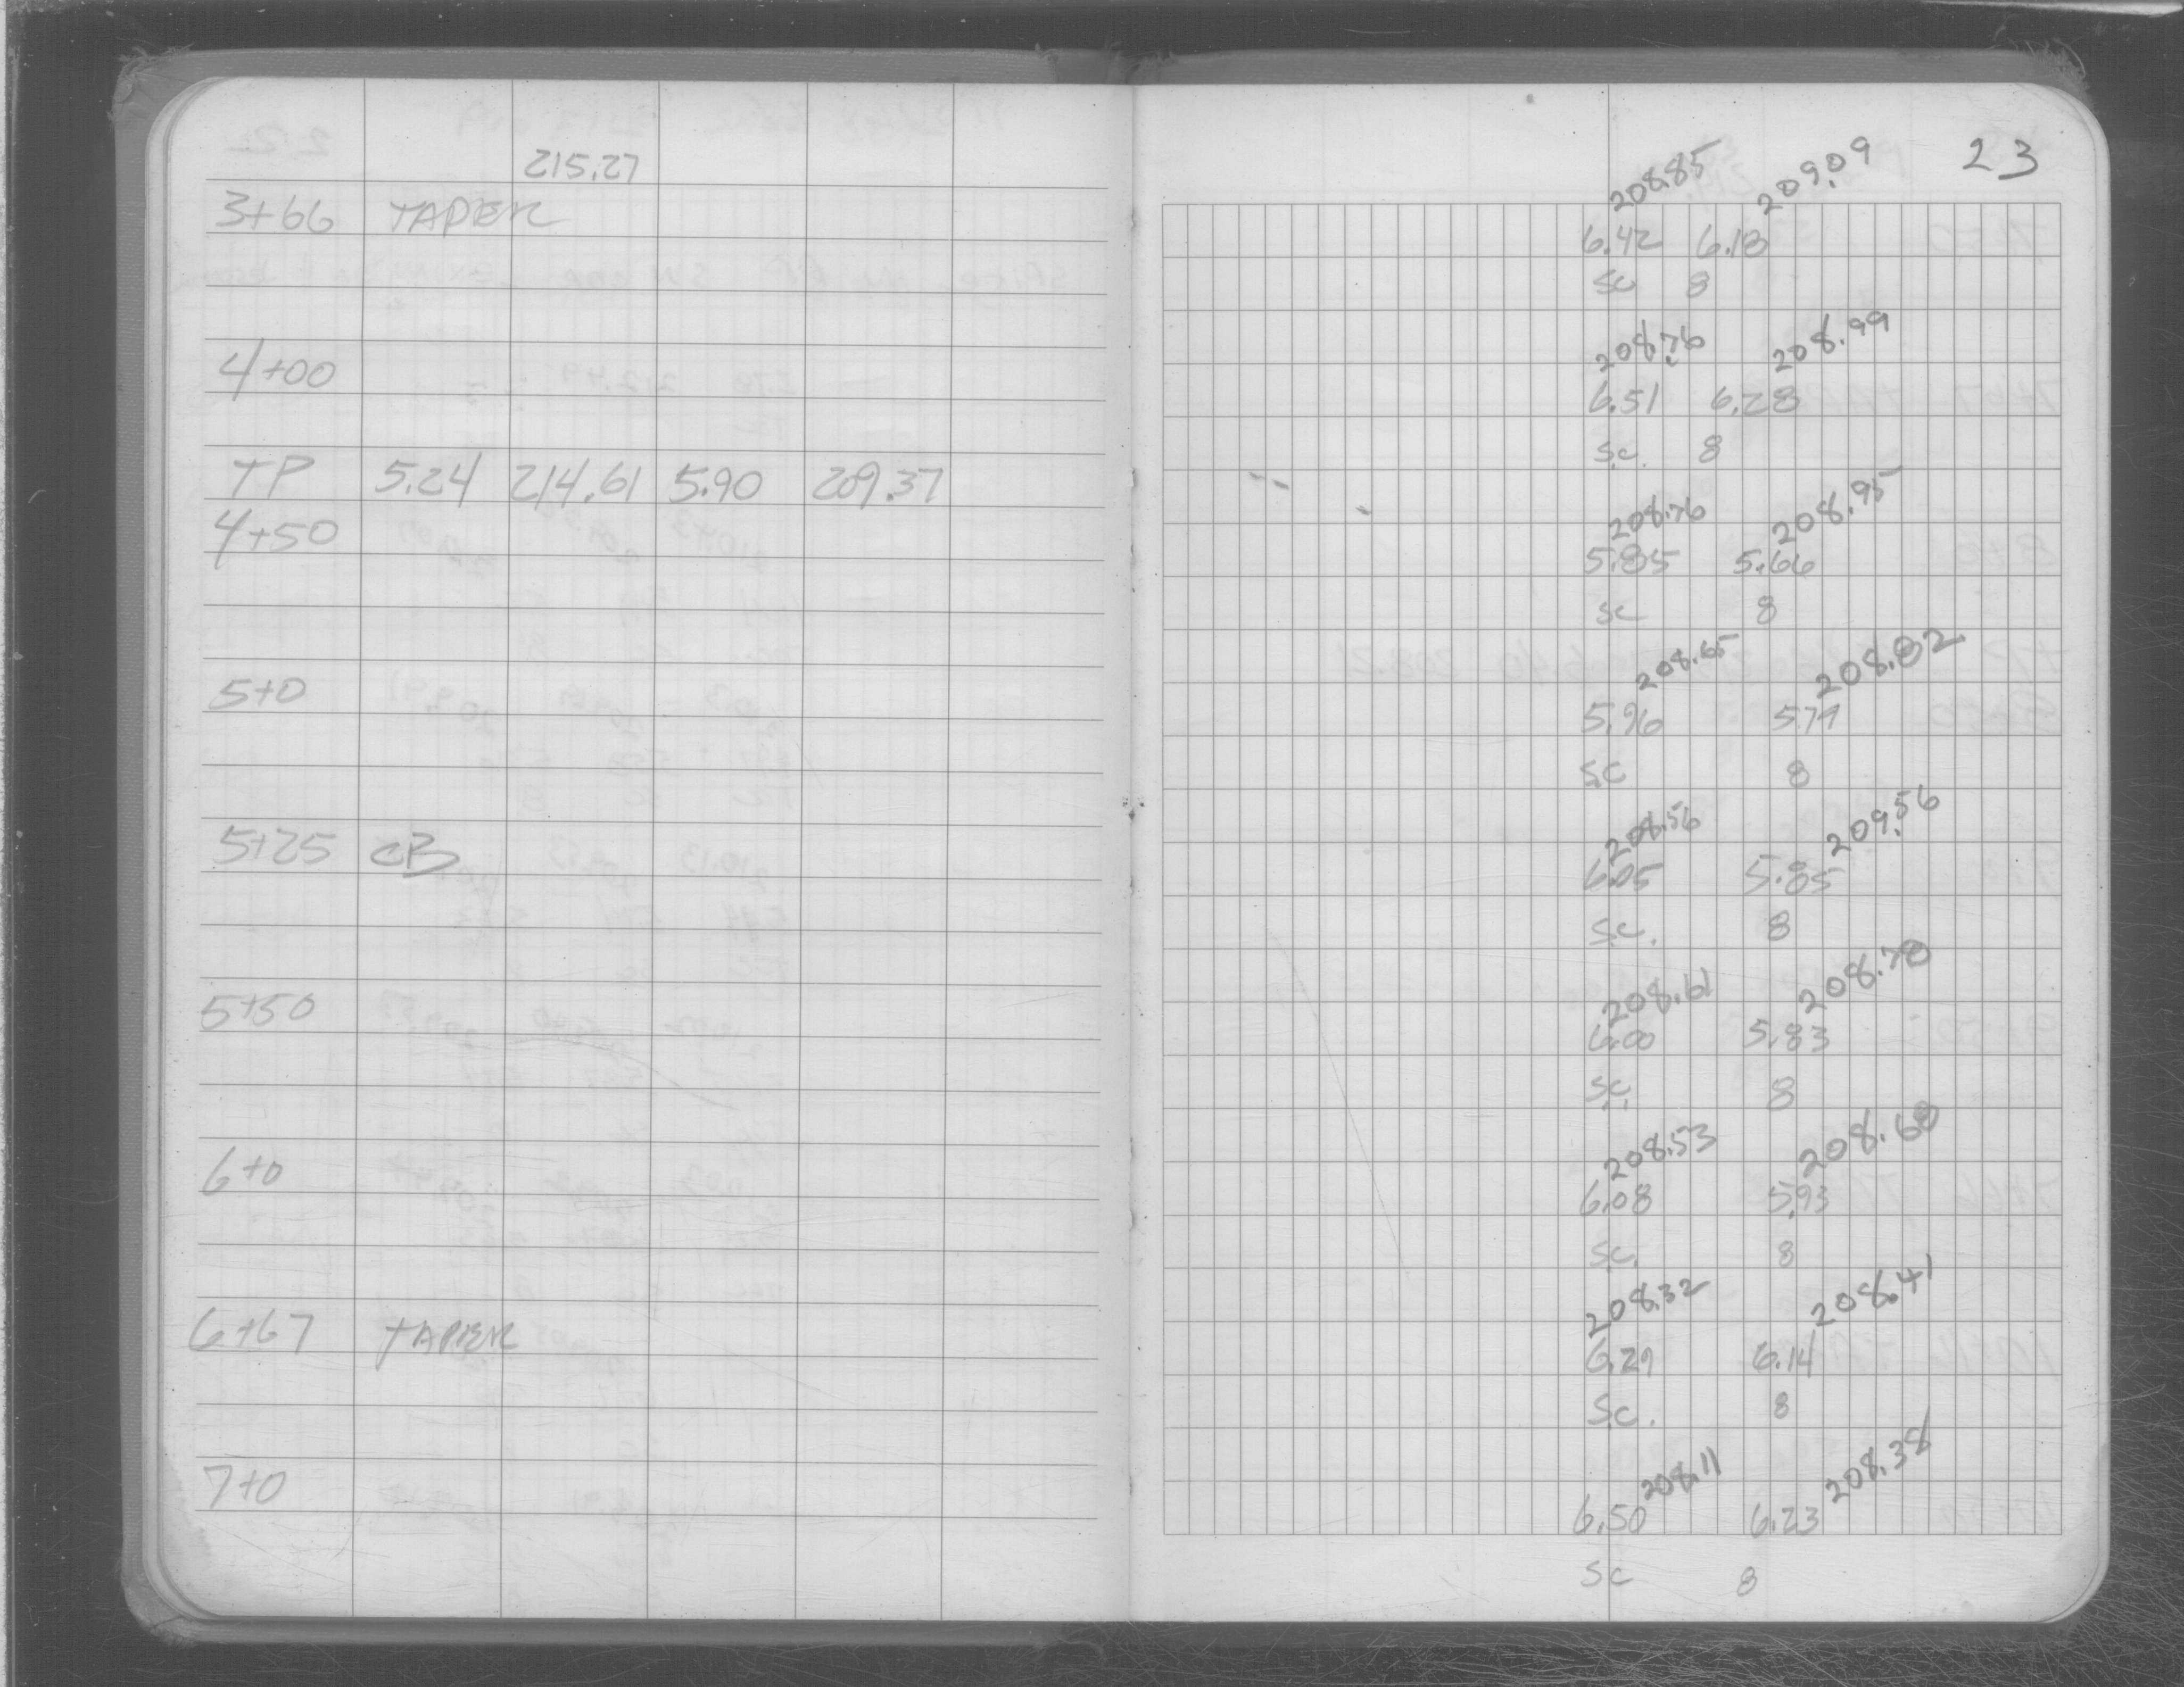 23
215.27
208.85 209.09
3+66 TAPER 6.42 6.18
SC 8
208.76 208.99
4+00 6.51 6.28
S.C. 8
TP 5.24 214.61 5.90 209.37
208.76 208.95
4+50 5.85 5.66
SC 8
208.65 208.82
5+0 5.96 5.79
SC 8
208.56 209.56
5+25 CB 6.05 5.85
S.C. 8
208.61 208.78
5+50 6.00 5.83
S.C. 8
208.53 208.68
6+0 6.08 5.93
S.C. 8
208.32 208.41
6+67 TAPER 6.29 6.14
S.C. 8
208.11 208.38
7+0 6.50 6.23
SC 8